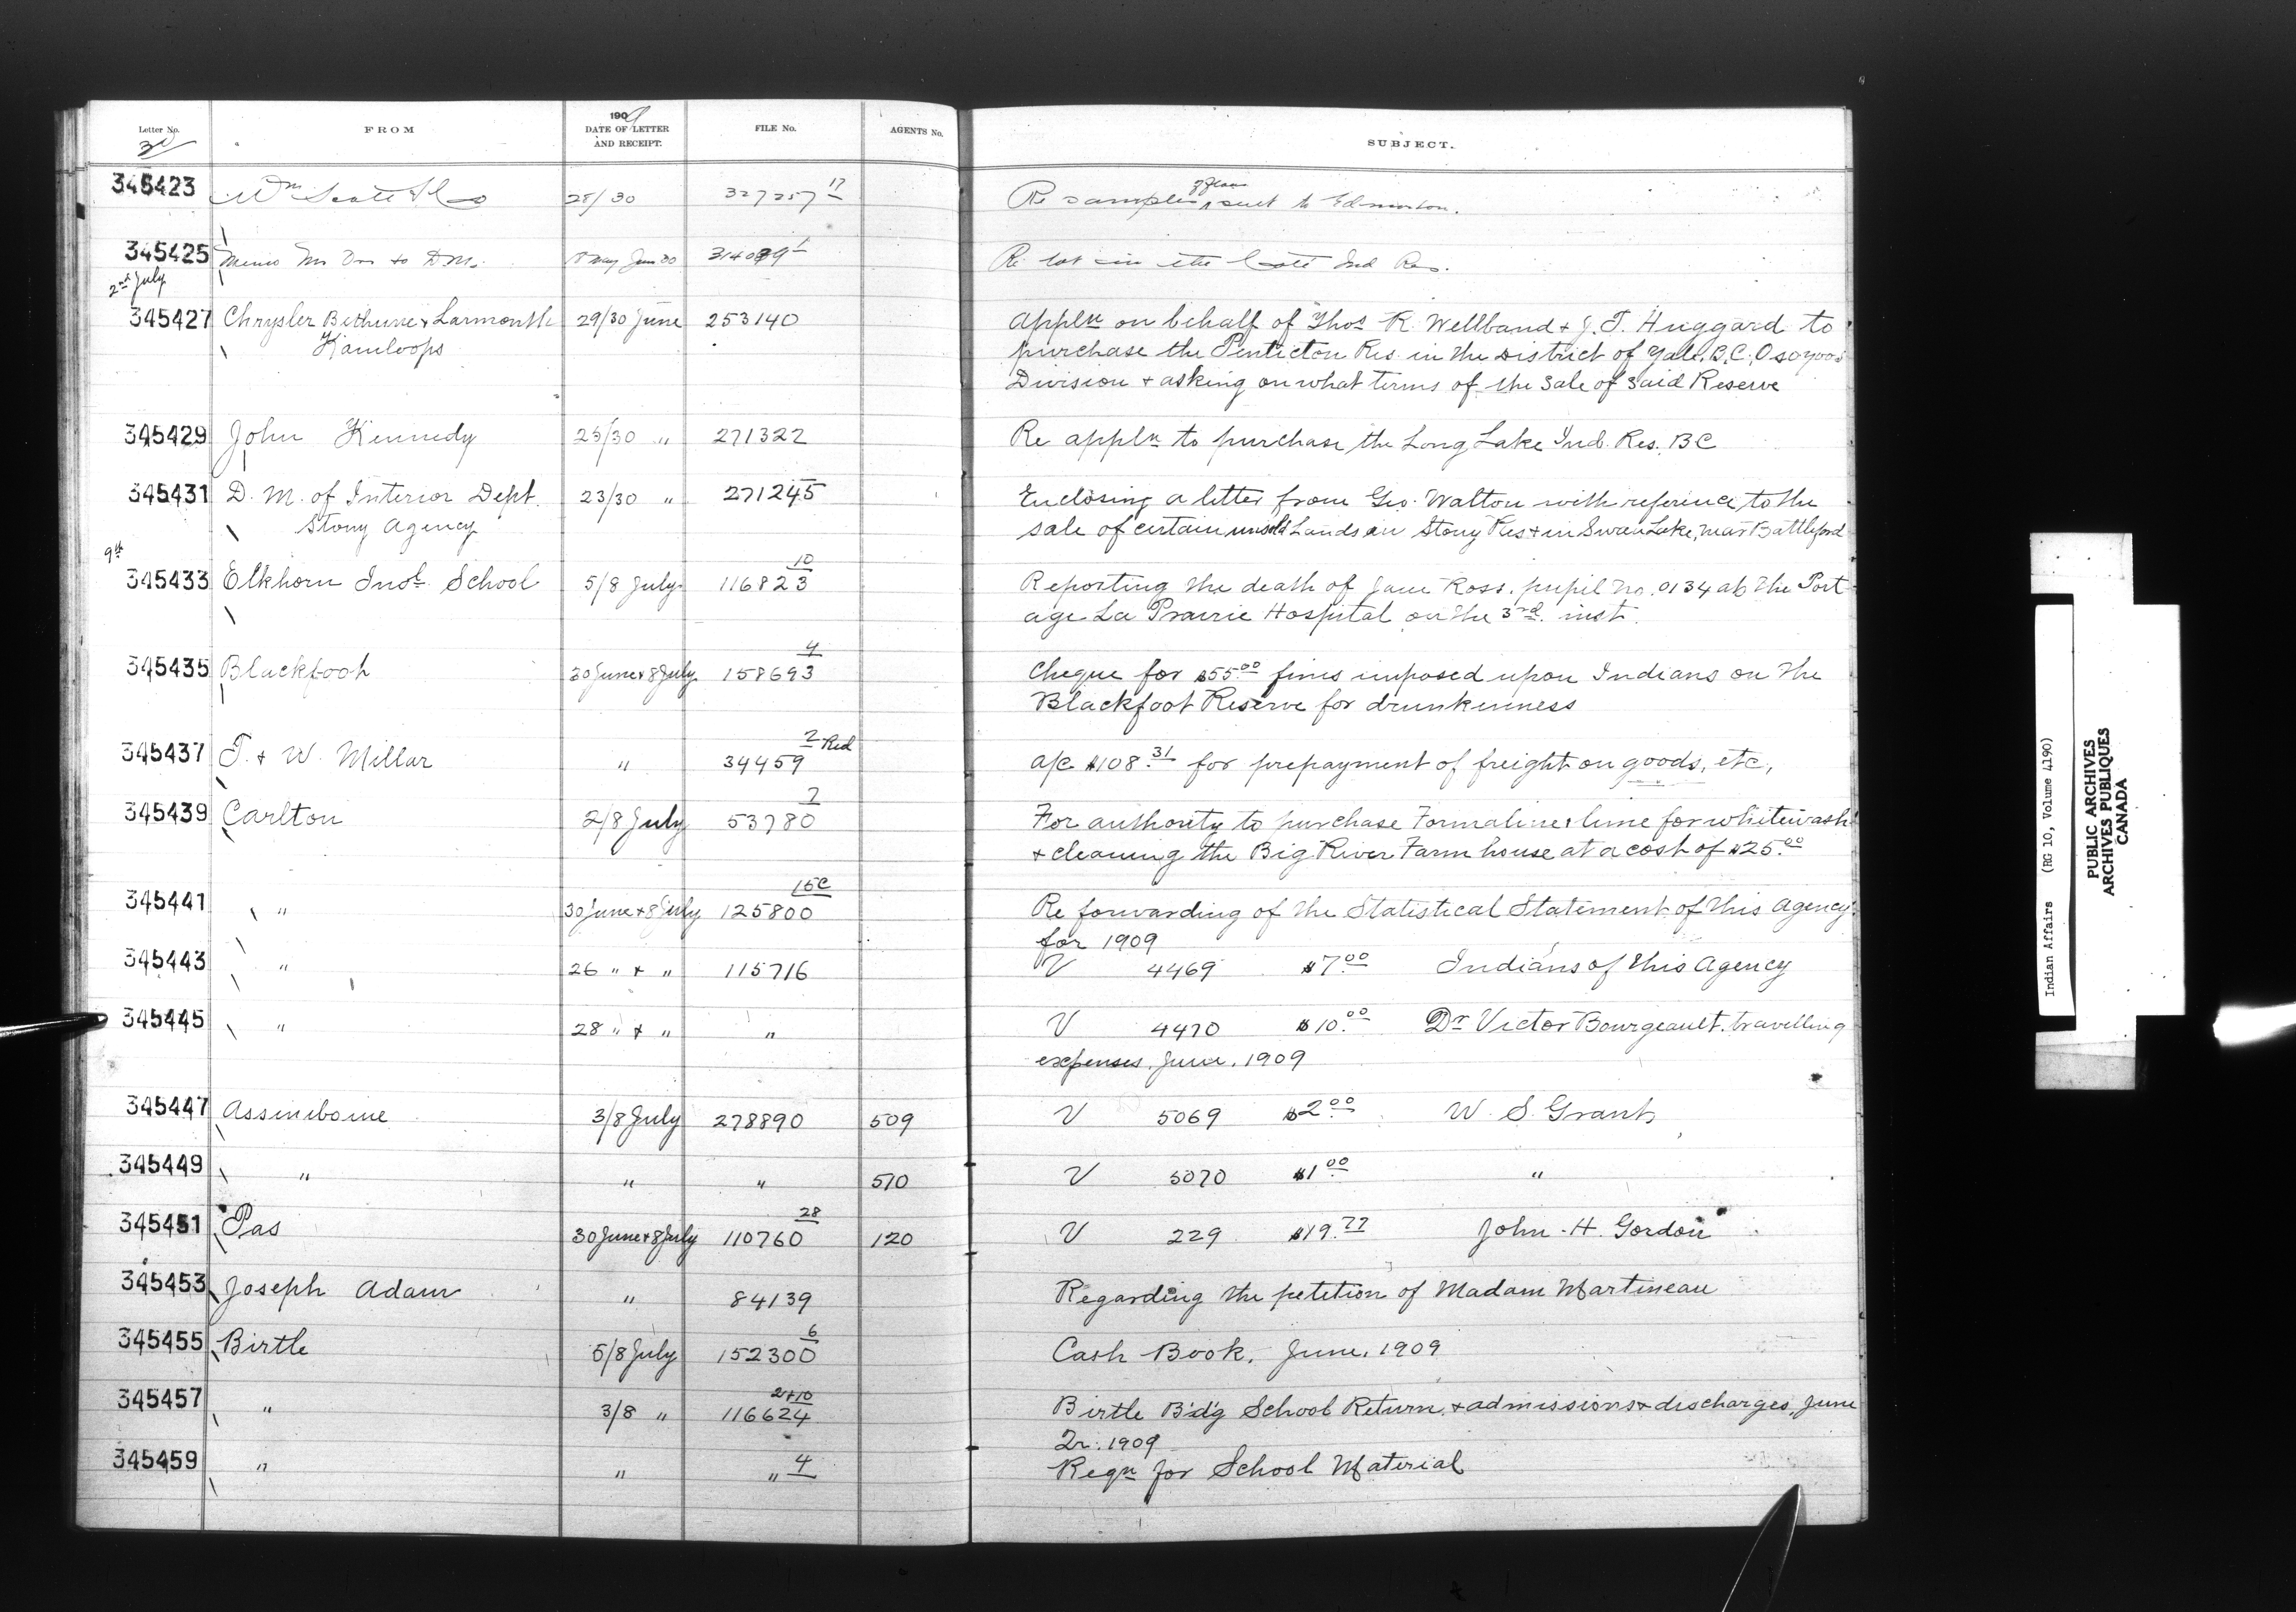 Letter No. FROM 1909 DATE OF LETTER AND RECEIPT. FILE No. AGENTS No. SUBJECT.
30
345423 Wm Scott & Co 28/30 327257 17 Re samples of flour sent to Edmonton.
345425 Memo Mr Orr to D.M. 18 May Jun 30 314089 1 Re lot in the Coté Ind Res.
2nd July
345427 Chrysler Bethune & Larmonth 29/30 June 253140 Appln on behalf of Thos R. Wellband & J. T. Huggard to
Kamloops purchase the Penticton Res. in the District of Yale, B.C., Osoyoos
Division & asking on what terms of the sale of said Reserve
345429 John Kennedy 25/30 " 271322 Re appln to purchase the Long Lake Ind. Res. B C
345431 D. M. of Interior Dept. 23/30 " 271245 Enclosing a letter from Geo. Walton with reference to the
Stony Agency sale of certain unsold Lands in Stony Res & in Swan Lake, near Battleford
9th
345433 Elkhorn Indl School 5/8 July 116823 10 Reporting the death of Jane Ross. pupil no. 0134 at the Port-
age La Prairie Hospital on the 3rd. inst.
345435 Blackfoot 30 June & 8 July 158693 4 Cheque for $55.00 fines imposed upon Indians on the
Blackfoot Reserve for drunkenness
345437 T. & W. Millar " 34459 2 Red a/c $108.31 for prepayment of freight on goods, etc,
345439 Carlton 2/8 July 53780 7 For authority to purchase Formaline & lime for whitewash
& cleaning the Big River Farm house at a cost of $25.00
345441 " 30 June & 8 July 125800 15C Re forwarding of the Statistical Statement of this Agency
for 1909
345443 " 26 " & " 115716 V 4469 $7.00 Indians of this Agency
345445 " 28 " & " " V 4470 $10.00 Dr Victor Bourgeault. travelling
expenses. June. 1909
345447 Assiniboine 3/8 July 278890 509 V 5069 $2.00 W. S. Grant
345449 " " " 510 V 5070 $1.00 "
345451 Pas 30 June & 8 July 110760 28 120 V 229 $19.77 John. H. Gordon
345453 Joseph Adam " 84139 Regarding the petition of Madam Martineau
345455 Birtle 5/8 July 152300 6 Cash Book. June. 1909
345457 " 3/8 " 116624 2+10 Birtle B'd'g School Return. & admissions & discharges, June
Qr. 1909
345459 " " " 4 Reqn for School Material
Indian Affairs (RG 10, Volume 4190)
PUBLIC ARCHIVES
ARCHIVES PUBLIQUES
CANADA